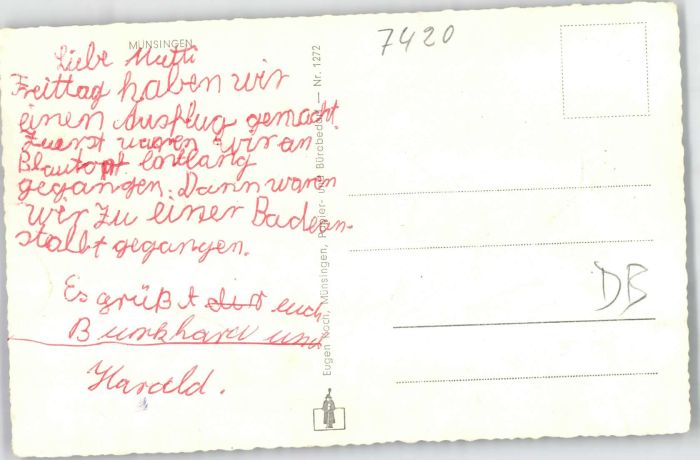 MÜNSINGEN
Liebe Mutti
Freittag haben wir
einen Ausflug gemacht.
Zuerst waren wir an
Blautopf entlang
gegangen. Dann waren
wir zu einer Badean-
stallt gegangen.
Es grüßt dir euch
Burkhard und
Harald.
Eugen Koch, Münsingen, Papier- und Bürobedarf — Nr. 1272
7420
DB